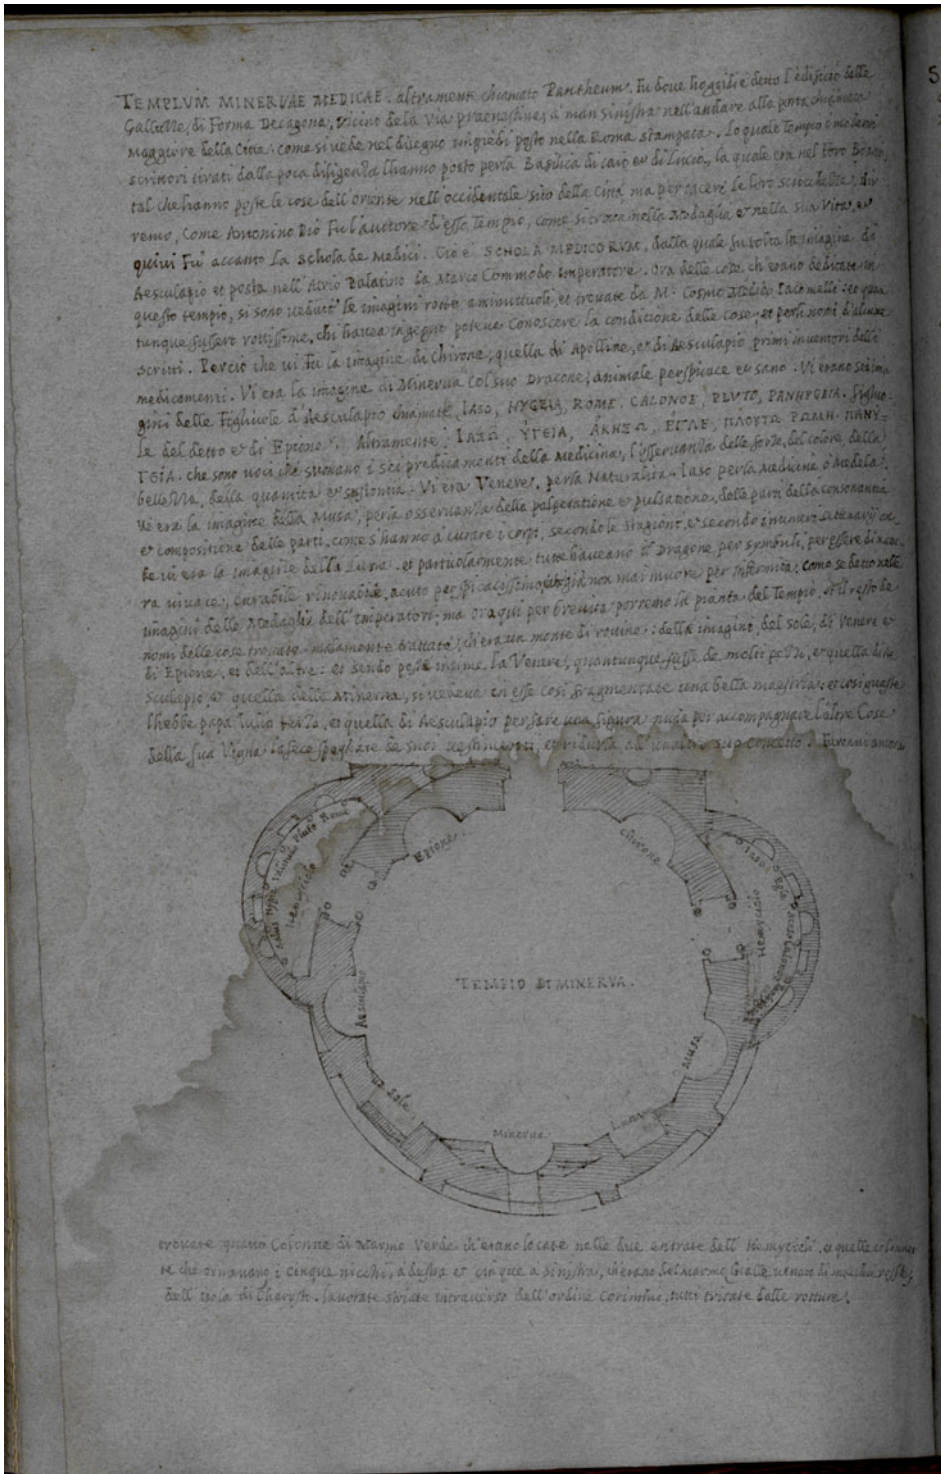 TEMPLVM MINERVAE MEDICAE. altramente chiamato Pantheum. Fu dove hoggidi è detto l'edificio delle
Galluzze, di Forma Decagona, vicino de la via Praenestina, à man sinistra nell'andare alla porta chiamata
Maggiore della Citta: come si vede nel disegno in piedi posto nella Roma stampata. Lo quale Tempio i moderni
scrittori tirati dalla poca diligenza l'hanno posto per la Basilica di Caio et di Lucio, la quale era nel foro Boario,
tal che hanno poste le cose dell'oriente nell'occidentale sito della Citta, ma per tacere le loro sciocchezze, di
remo, come Antonino Pio Fu l'auttore d'esso Tempio, come si trova nella Medaglia et nella sua Vita, et
quivi Fu accanto la Schola de Medici. Cio è SCHOLA MEDICORVM, dalla quale fu tolta la imagine di
Aesculapio et posta nell'Atrio Palatino da Marco Commodo imperatore. Ora delle cose, ch'erano dedicate in
questo tempio, si sono vedute le imagini rotte a minuttuoli, et trovate da M. Cosmo Medico Iacomelli: et quan
tunque fussero rottissime, chi havea ingegno poteva conoscere la conditione delle cose, et per li nomi d'alcune
scritti. Percio che vi Fu la imagine di Chirone, quella di Apolline, et di Aesculapio primi inventori delli
medicamenti. Vi era la imagine di Minerva col suo Dracone, animale perspicace et sano. Vi erano sei ima
gini delle Figliuole d'Aesculapio chiamate, IASO, HYGEIA, ROME, CALONOE, PLVTO, PANHYGEIA. Figliuo
le del detto et di Epione. Altramente, ΙΑΣΩ, ΥΓΕΙΑ, ΑΚΗΣΩ, ΕΓΛΕ, ΠΛΟΥΤΩ ΡΩΜΗ ΠΑΝΥ-
ΓΕΙΑ. che sono voci che suonano i sei predicamenti della Medicina, l'osservanza delle forze, del colore, della
bellezza, della quantità et sustantia. Vi era Venere, per la Naturalità. Iaso per la Medicina ò Medela.
Vi era la imagine della Musa, per la osservanza della palperatione et pulsatione, delle parti della consonantia
et compositione delle parti, come s'hanno à curare i corpi, secondo le stagioni, et secondo i numeri settenarij
vi era la imagine della Luna. et particolarmente tutte haveano il Dragone per symbuli, per essere di natu
ra vivace, curabile rinovabile, acuto perspicacissimo, et gia non mai muore per infermità: come se dette nelle
imagini delle Medaglie dell'imperatori: ma ora qui per brevita porremo la pianta del Tempio. Il resto de
nomi delle cose trovate malamente trattate, ch'era un monte di rovine: della imagini, del sole, di Venere et
di Epione, et dell'altre: et sendo poste insime. La Venere, quantunque fusse de molti pezzi, et quella di Ae
sculapio, et quella della Minerva, si vedeva in esse cosi fragmentate una bella maestria: et cosi guaste
l'hebbe papa Iulio terzo, et quella di Aesculapio per fare una figura nuda per accompagnare l'altre Cose
della sua Vigna la fece spogliare de suoi vestimenti, et ridurla ad suo concetto. Furenvi ancora
Rome
Pluto
Hemyciclo
Epione.
Chirone
Iaso
Hemyciclo
TEMPIO DI MINERVA.
Aesculapio
Musa
Sole
Luna
Minerva
trovate quatro Colonne di Marmo Verde ch'erano locate nelle due entrate dell'Hemycicli, et quelle colonnet
te che ornavano i cinque nicchi, à destra et cinque à sinistra, ch'erano del marmo Giallo venato di rosse,
dell'isola di Charysto. lavorate striate intraverso dell'ordine Corinthio, tutti tritate dalle rotture.